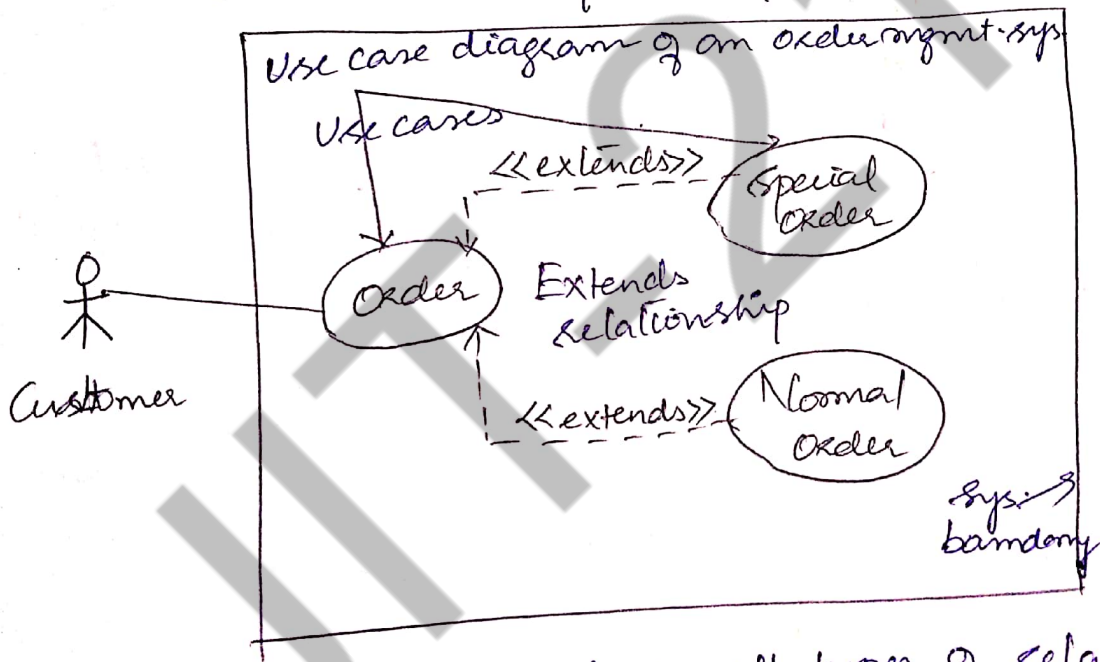 Use case diagram of an order mgmt. sys
Use cases
<<extends>>
Special
Order
Order
Extends
relationship
Customer
<<extends>>
Normal
Order
Sys.